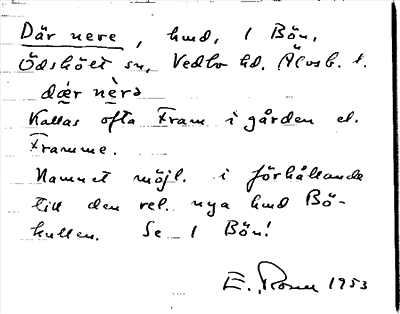 Där nere, hmd, 1 Bön,
Ödskölt sn, Vedbo hd, Älvsb. l.
dær nèrə
Kallas ofta Fram i gården el.
Framme.
Namnet möjl. i förhållande
till den rel. nya hmd Bö-
kullen. Se 1 Bön!
E. 1953